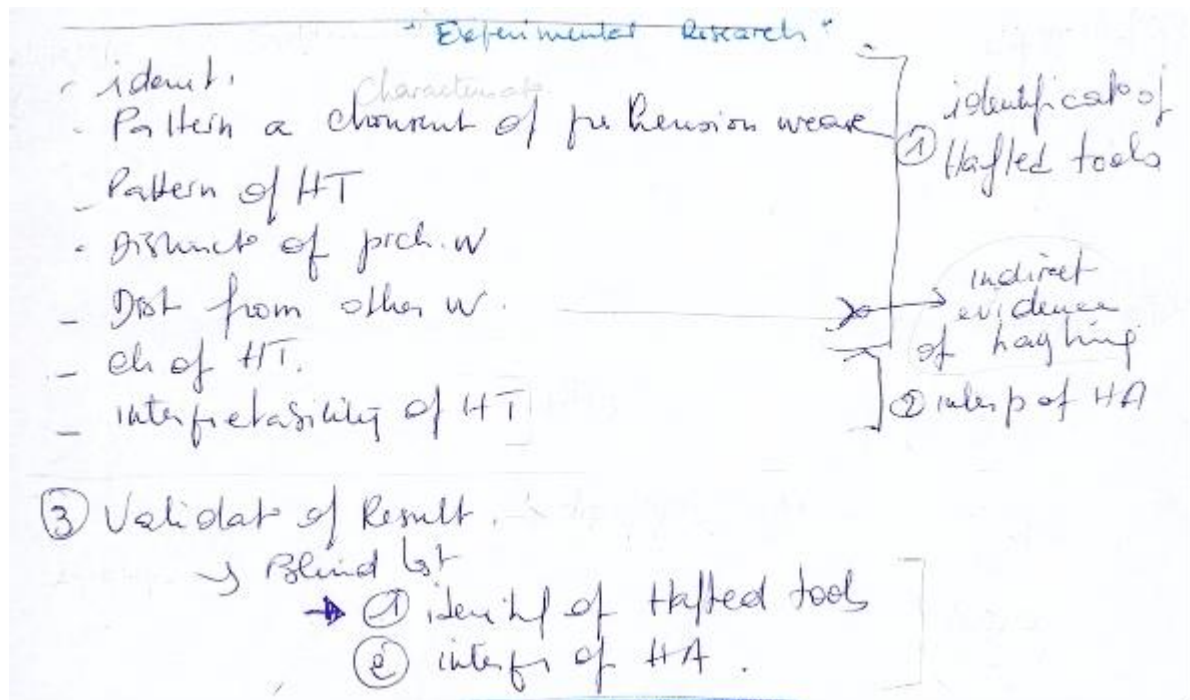 "Experimental Research"
- ident.
Characterisato
- Pattern a chonront of prehension weare
- Pattern of HT
- Distinct° of preh. w
- Dist from other w.
- ch of HT.
- interpretability of HT
① identificat° of
Hafted tools
indirect
evidence
of hafting
② interp of HA
③ Validat° of Result.
Blind tst
① identif of Hafted tools
② interpr of HA.